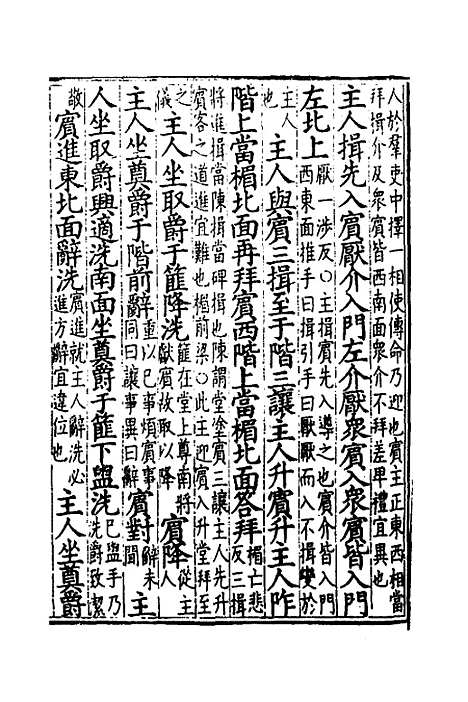 人於羣吏中擇一相使傳命乃迎也賓主正東西相當
拜揖介及衆賓皆西南面衆介不拜差卑禮宜異也
主人揖先入賓厭介入門左介厭衆賓入衆賓皆入門
左北上厭一涉反○主揖賓先入導之也賓介皆入門西東面推手曰揖引手曰厭厭而入不揖變於
主人也主人與賓三揖至于階三讓主人升賓升主人阼
階上當楣北面再拜賓西階上當楣北面荅拜楣亡悲反三揖
將進揖當陳揖當碑揖也陳謂堂塗賓三讓主人先升
賓客之道進宜難也楣前梁○此主迎賓入升堂拜至
之儀主人坐取爵于篚降洗篚在堂上尊南將獻賓故取以降賓降從主人
主人坐奠爵于階前辭重以已事煩賓事同曰讓事異曰辭賓對辭未聞主
人坐取爵興適洗南面坐奠爵于篚下盥洗已盥手乃洗爵致潔
敬賓進東北面辭洗賓進就主人辭洗必進方辭宜違位也主人坐奠爵